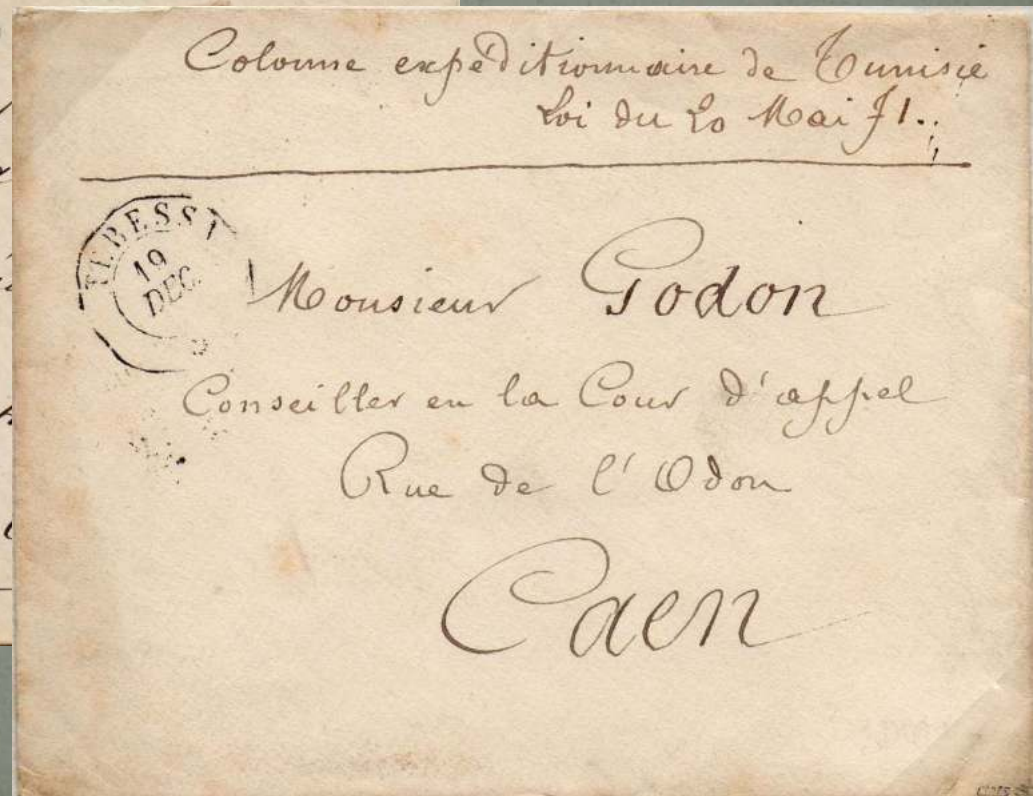 Colonne expéditionnaire de Tunisie
Loi du 20 Mai 71.
TEBESSA
19
DEC.
Monsieur Godon
Conseiller en la Cour d'appel
Rue de l'Odon
Caen